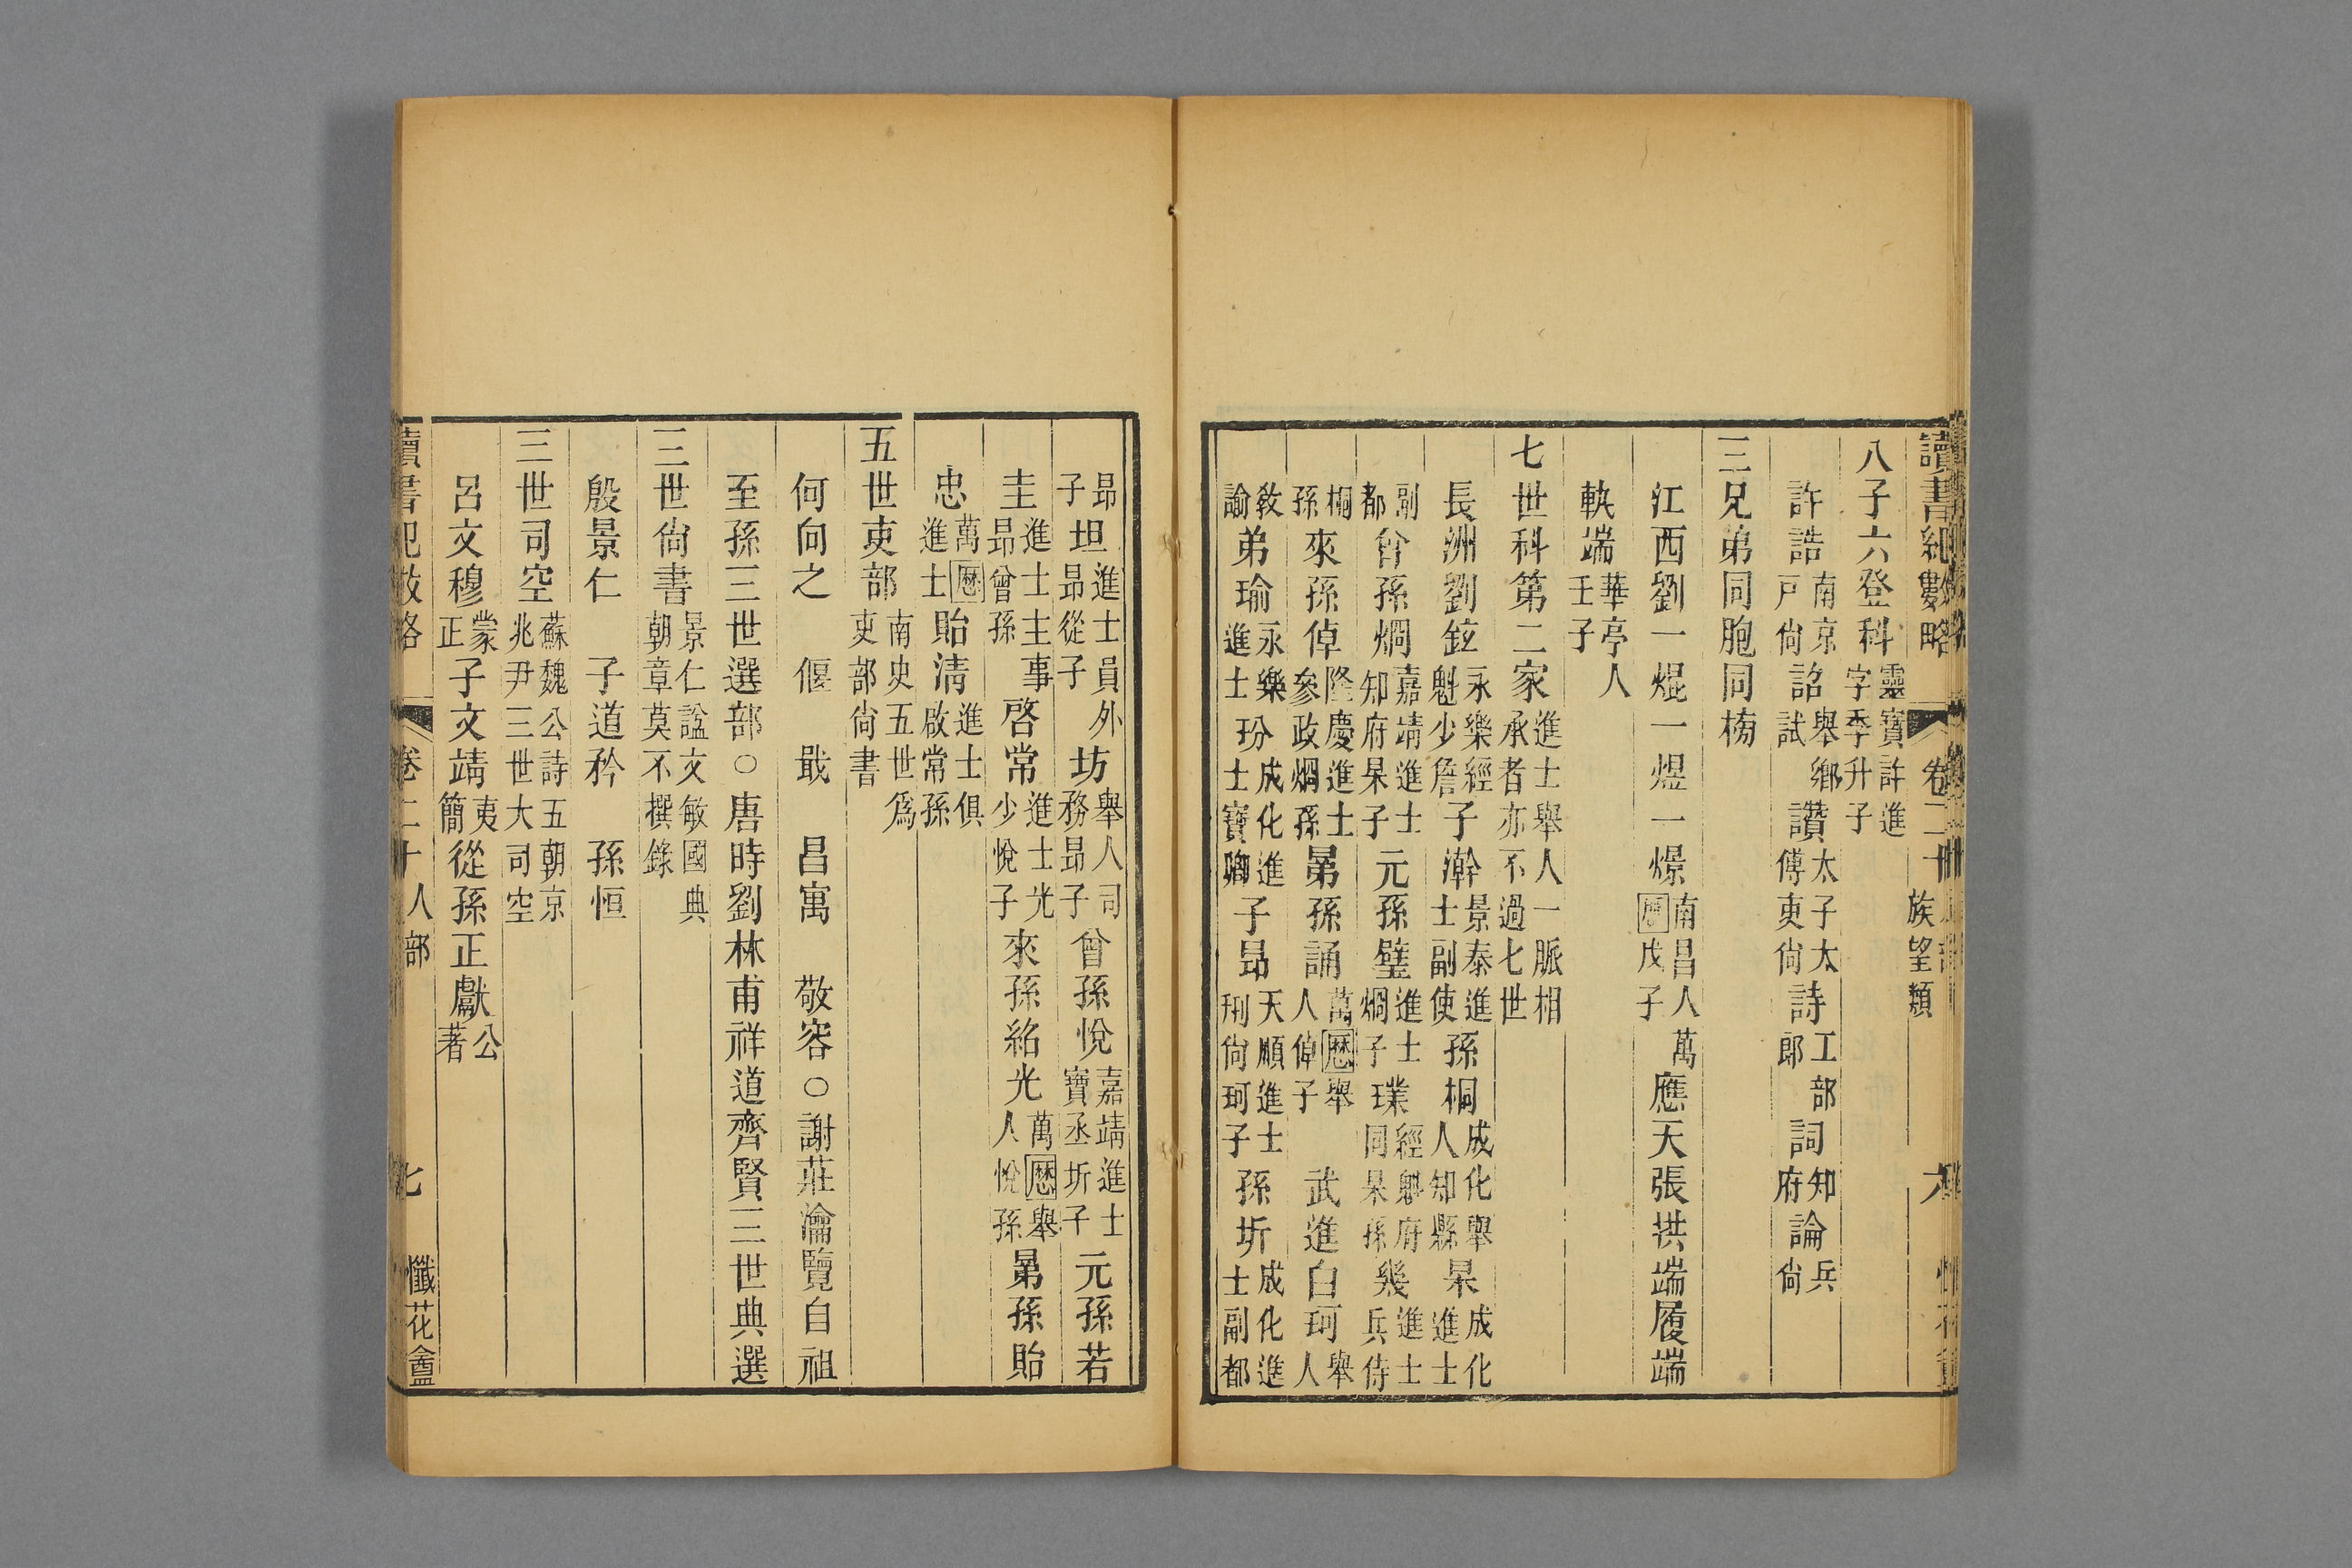 讀書紀數略 卷二十 人部 族望類 六
八子六登科 靈寶許進字季升子
許誥 南京戸尙 詔 舉鄉試 讚 太子太傅吏尙 詩 工部郎 詞 知府 論 兵尙
三兄弟同胞同榜
江西劉一焜一煜一燝 南昌人萬曆戊子 應天張拱端履端
軼端 華亭人壬子
七世科第二家 進士舉人一脈相承者亦不過七世
長洲劉鉉 永樂經魁少詹 子瀚 景泰進士副使 孫桐 成化舉人知縣 杲 成化進士
副都 曾孫燗 嘉靖進士知府杲子 元孫璧 進士燗子 璞 經魁府同杲孫 㡬 進士兵侍
桐孫 來孫倬 隆慶進士參政燗孫 晜孫誦 萬曆舉人倬子 武進白珂 舉人
敎諭 弟瑜 永樂進士 玢 成化進士寶卿 子昂 天順進士刑尙珂子 孫圻 成化進士副都
昂子 坦 進士員外昂從子 坊 舉人司務昂子 曾孫悅 嘉靖進士寶丞圻子 元孫若
圭 進士主事昂曾孫 啓常 進士光少悅子 來孫紹光 萬曆舉人悅孫 晜孫貽
忠 萬曆進士 貽淸 進士俱啟常孫
五世吏部 南史五世爲吏部尙書
何尙之 偃 戢 昌寓 敬容○謝莊瀹覽自祖
至孫三世選部○唐時劉林甫祥道齊賢三世典選
三世尙書 景仁諡文敏國典朝章莫不撰錄
殷景仁 子道矜 孫恒
三世司空 蘇魏公詩五朝京兆尹三世大司空
呂文穆 蒙正 子文靖 夷簡 從孫正獻 公著
讀書紀數略 卷二十 人部 七 懺花盦